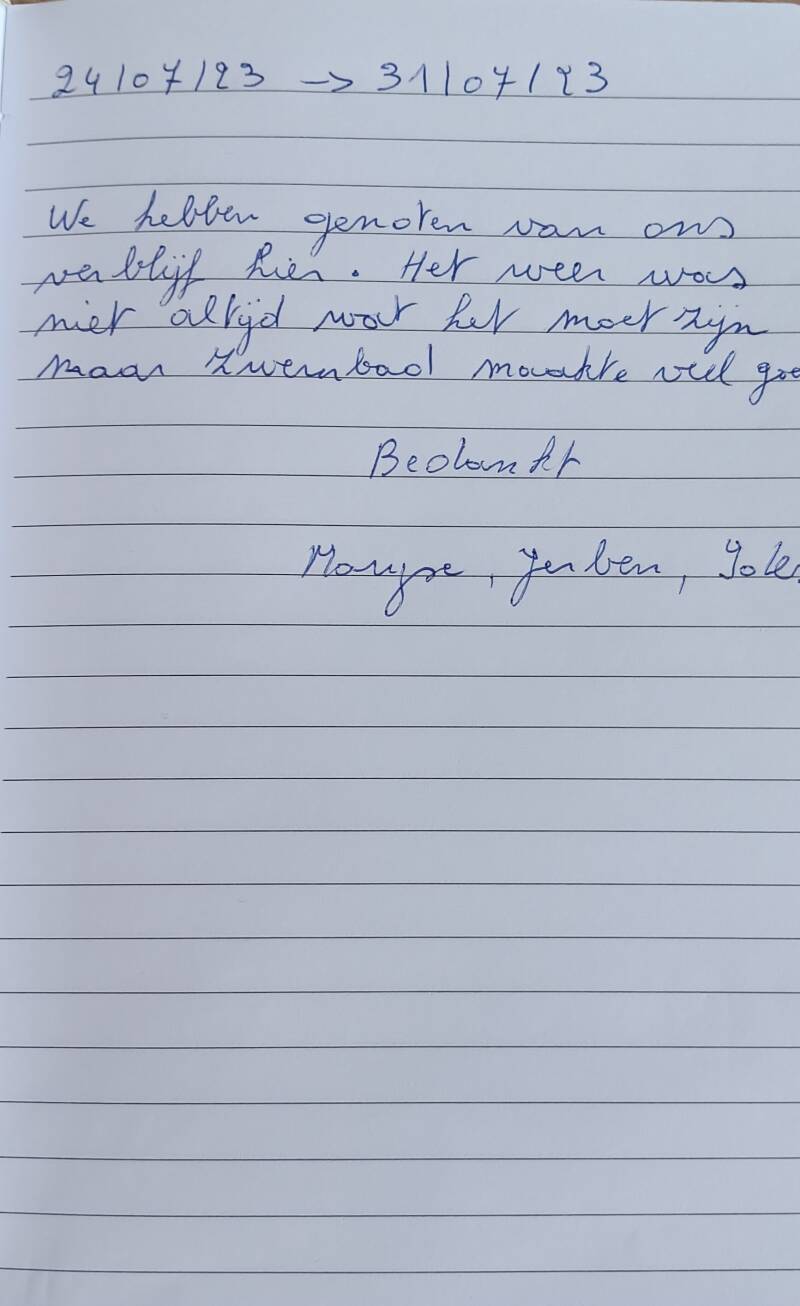 24/07/23 -> 31/07/23
We hebben genoten van ons
verblijf hier. Het weer was
niet altijd wat het moet zijn
maar zwembad maakte veel goe
Bedankt
Maryse, Jerben,